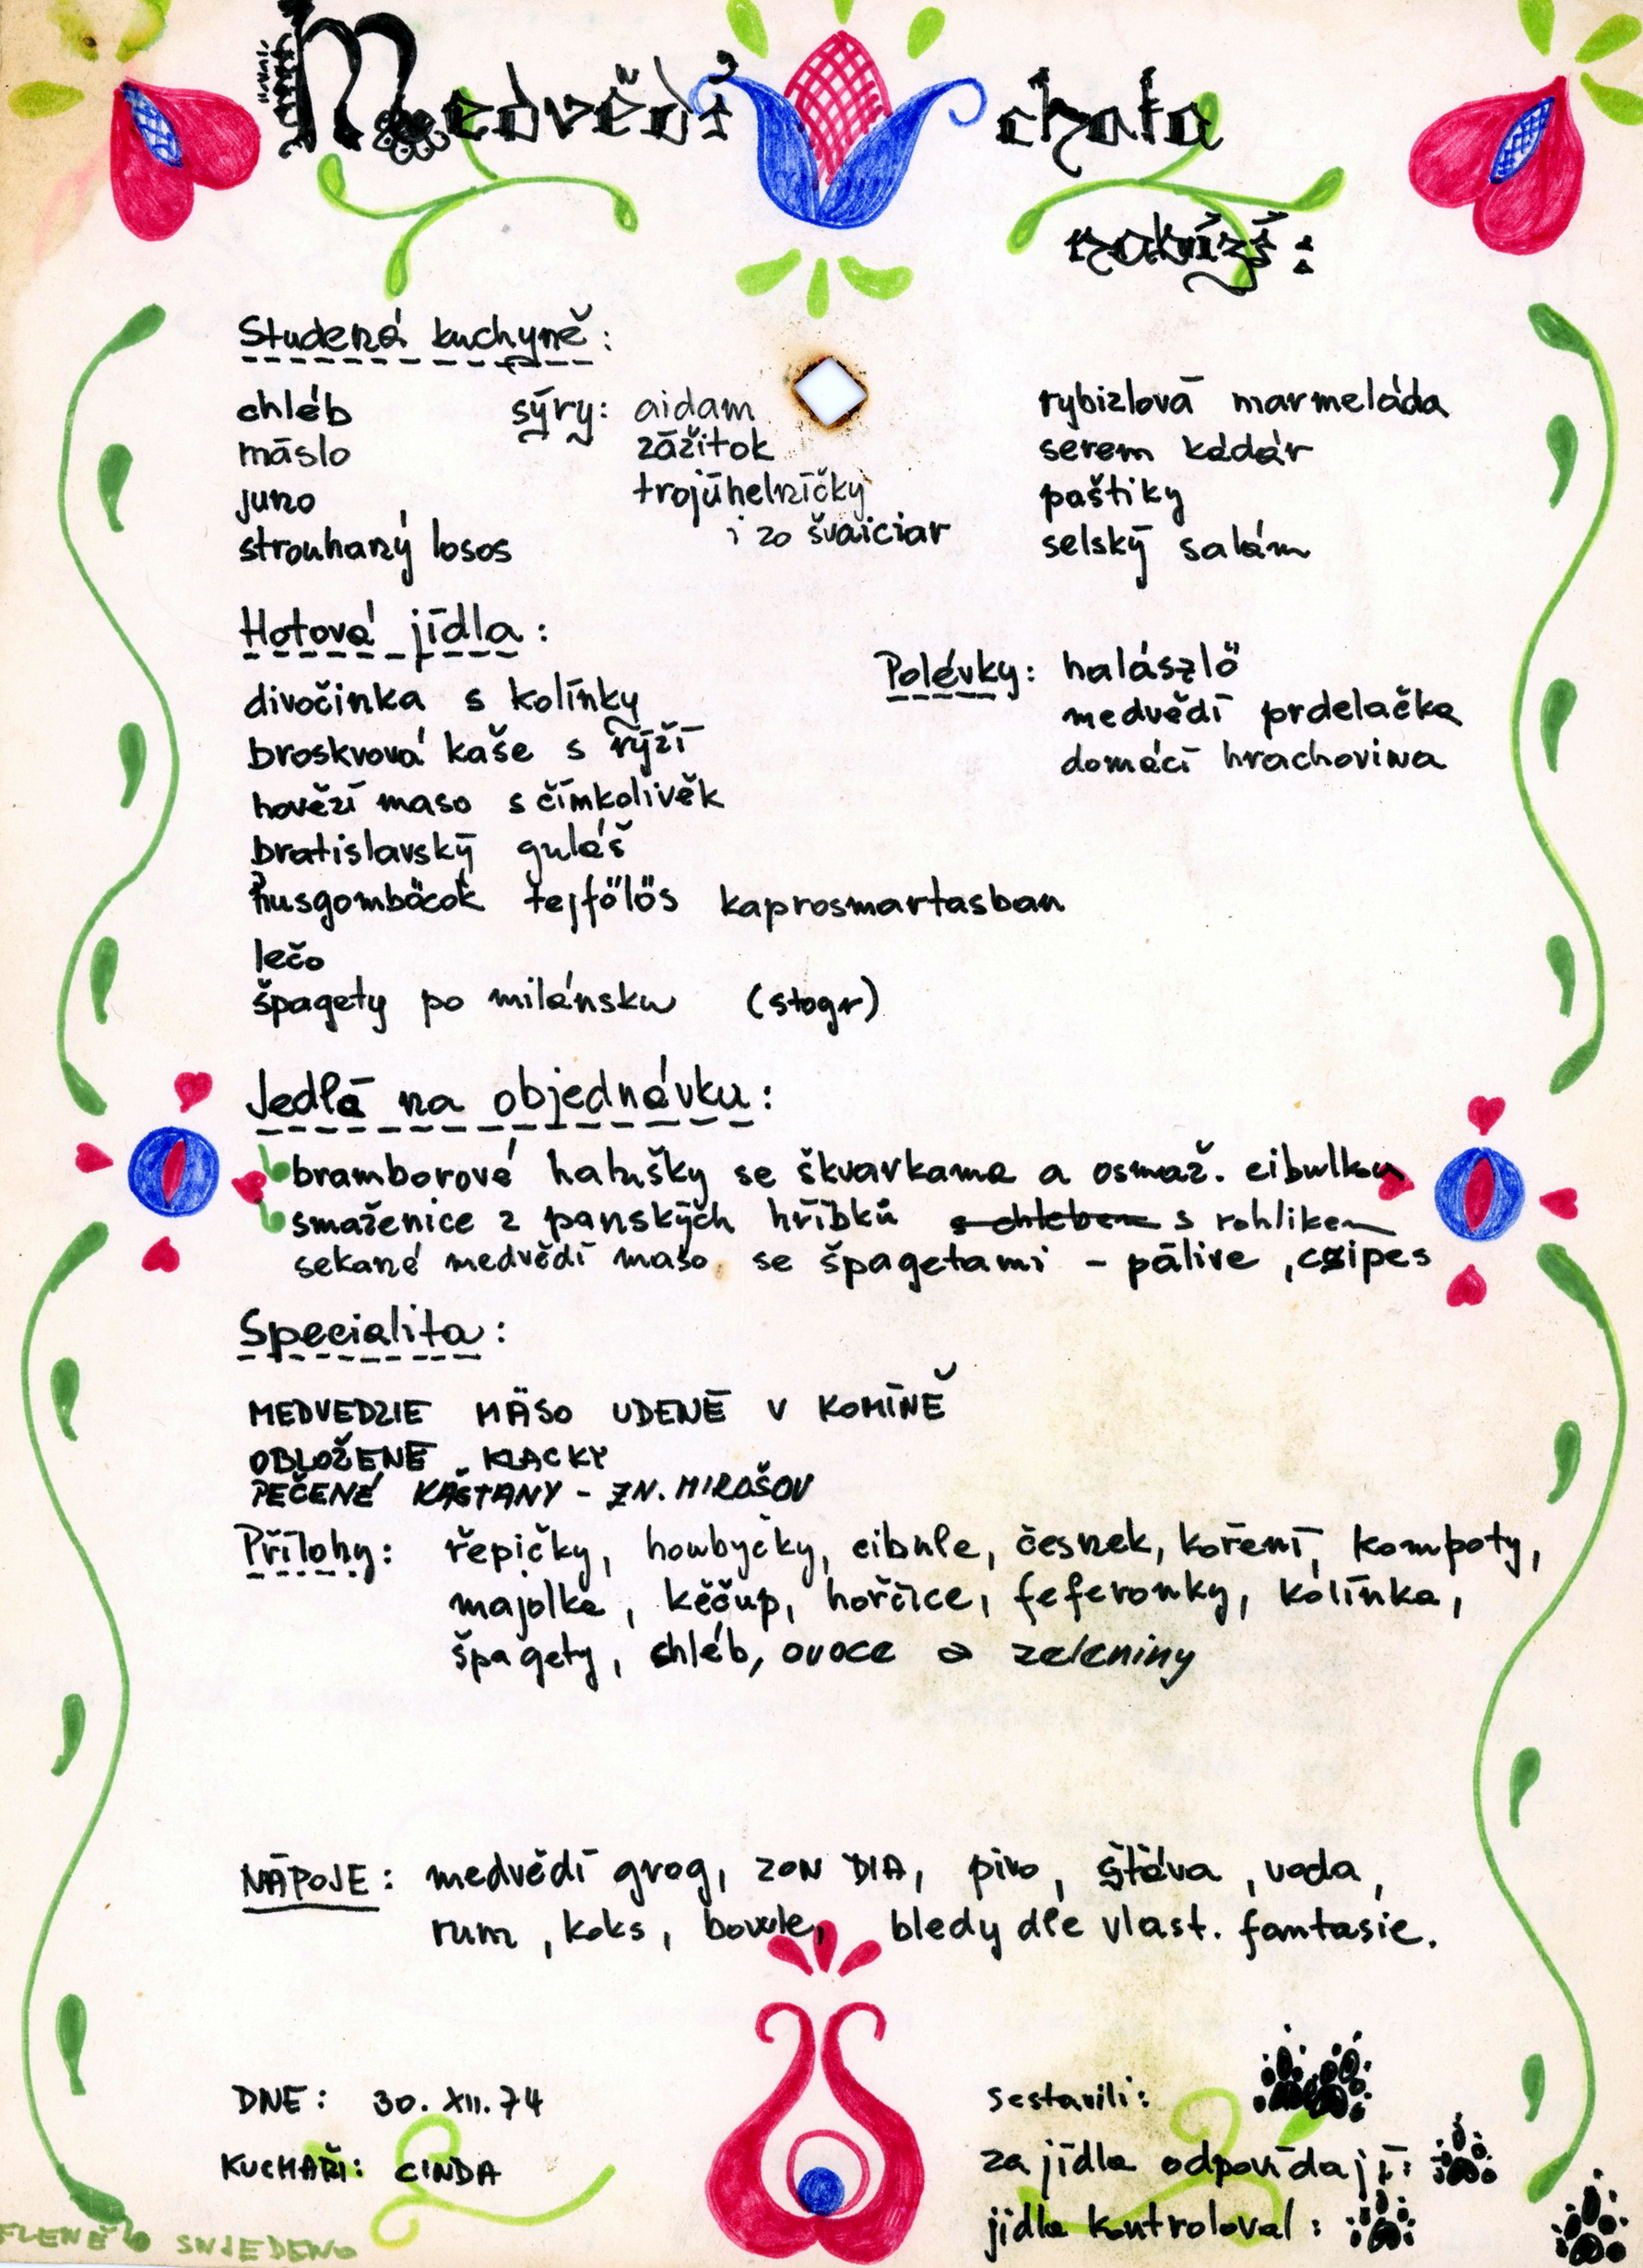 Medvědí chata
nabízí:
Studená kuchyně:
chléb
máslo
juno
strouhaný losos
sýry: aidam
zážitok
trojúhelníčky
i zo švaiciar
rybizlová marmeláda
serem kádár
paštiky
selský salám
Hotová jídla:
divočinka s kolínky
broskvová kaše s rýží
hovězí maso s čímkolivěk
bratislavský guláš
husgombócok tejfölös kaprosmartasban
lečo
špagety po milánsku (stogr)
Polévky: halászló
medvědí prdelačka
domácí hrachovina
Jedlá na objednávku:
bramborové halušky se škvarkama a osmaž. cibulkou
smaženice z panských hříbků s chlebem s rohlikem
sekané medvědí maso se špagetami - pálive, csípes
Specialita:
MEDVEDZIE MÄSO UDENÉ V KOMÍNĚ
OBLOŽENÉ KLACKY
PEČENÉ KAŠTANY - ZN. MIROŠOV
Přílohy: řepičky, houbyčky, cibule, česnek, koření, kompoty,
majolka, kěčup, hořčice, feferonky, kolínka,
špagety, chléb, ovoce a zeleniny
NÁPOJE: medvědí grog, ZON DIA, pivo, šťáva, voda,
rum, koks, bowle, bledy dle vlast. fantasie.
DNE: 30. XII. 74
KUCHAŘI: CINDA
sestavili:
za jídla odpovídají:
jídla kontroloval:
SNJEDENO